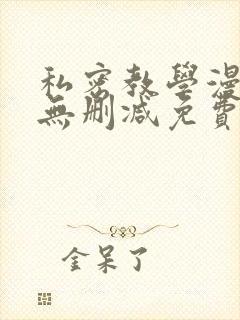 私密教學漫
無刪減免費
金呆了